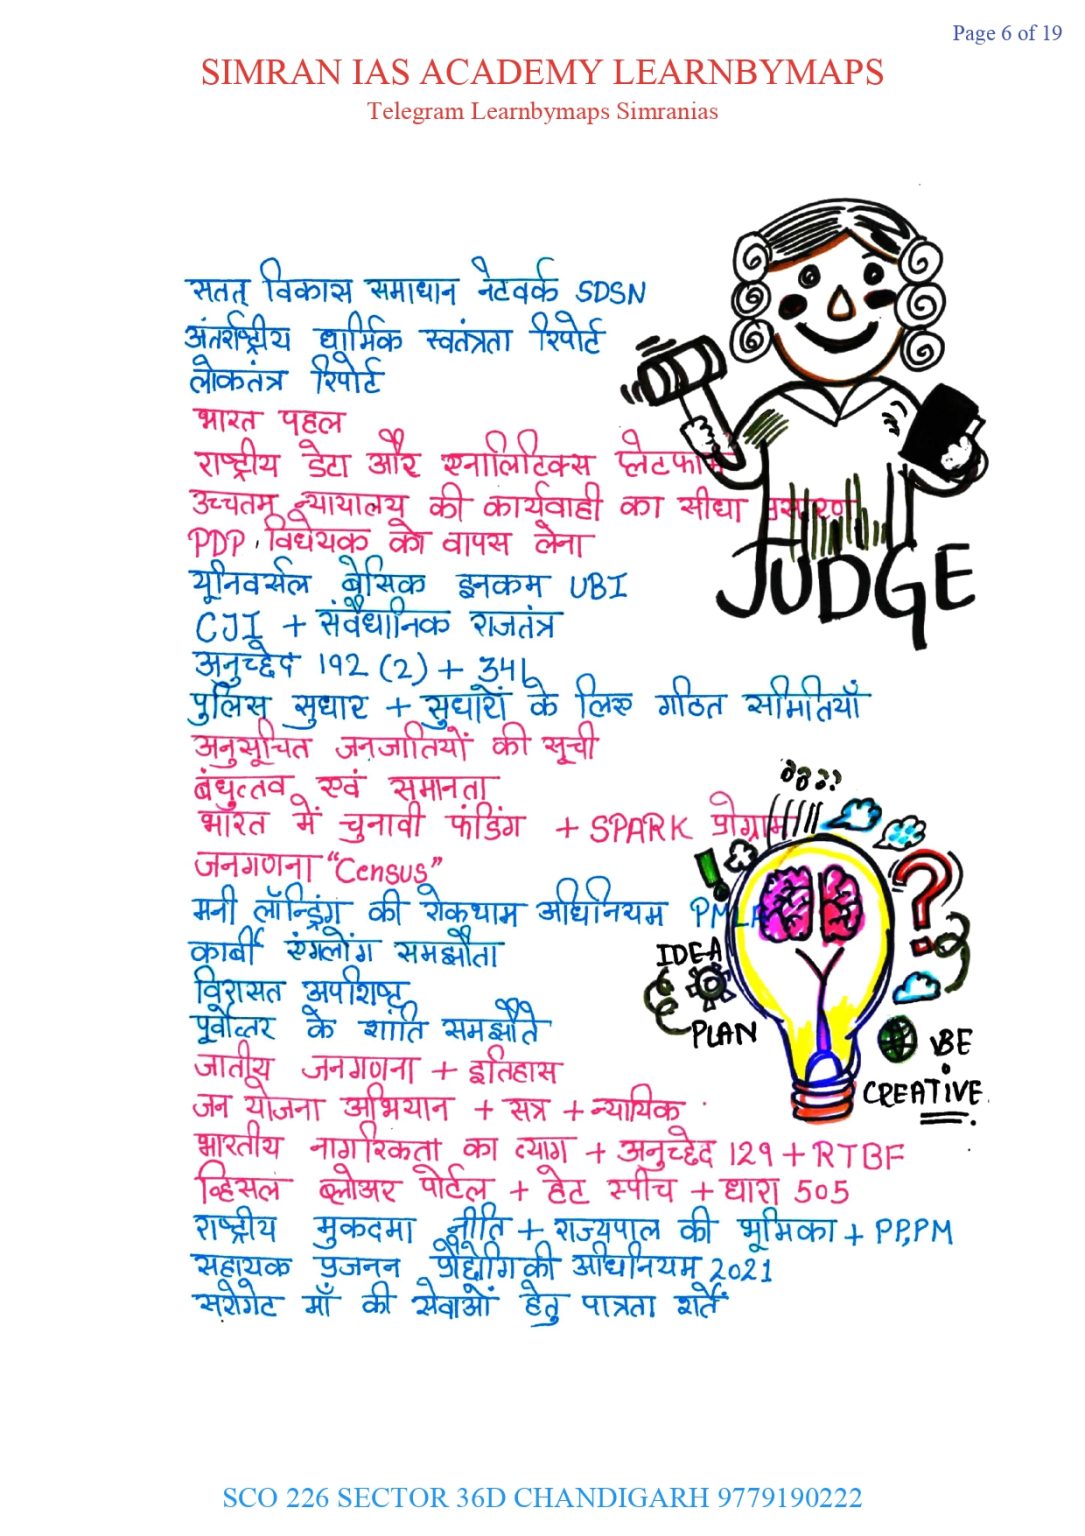 Page 6 of 19
SIMRAN IAS ACADEMY LEARNBYMAPS
Telegram Learnbymaps Simranias
सतत् विकास समाधान नेटवर्क SDSN
अंतर्राष्ट्रीय धार्मिक स्वतंत्रता रिपोर्ट
लोकतंत्र रिपोर्ट
भारत पहल
राष्ट्रीय डेटा और एनालिटिक्स प्लेटफार्म
उच्चतम न्यायालय की कार्यवाही का सीधा प्रसारण
PDP विधेयक को वापस लेना
JUDGE
यूनिवर्सल बेसिक इनकम UBI
CJI + संवैधानिक राजतंत्र
अनुच्छेद 192 (2) + 341
पुलिस सुधार + सुधारों के लिए गठित समितियाँ
अनुसूचित जनजातियों की सूची
बंधुत्तव एवं समानता
भारत में चुनावी फंडिंग + SPARK प्रोग्राम
जनगणना "Census"
मनी लॉन्ड्रिंग की रोकथाम अधिनियम PMLA
कार्बी एंगलोंग समझौता
IDEA
विरासत अपशिष्ट
पूर्वोत्तर के शांति समझौते
PLAN
BE
CREATIVE
जातीय जनगणना + इतिहास
जन योजना अभियान + सत्र + न्यायिक
भारतीय नागरिकता का त्याग + अनुच्छेद 129 + RTBF
व्हिसल ब्लोअर पोर्टल + हेट स्पीच + धारा 505
राष्ट्रीय मुकदमा नीति + राज्यपाल की भूमिका + PP,PM
सहायक प्रजनन प्रौद्योगिकी अधिनियम 2021
सरोगेट माँ की सेवाओं हेतु पात्रता शर्तें
SCO 226 SECTOR 36D CHANDIGARH 9779190222